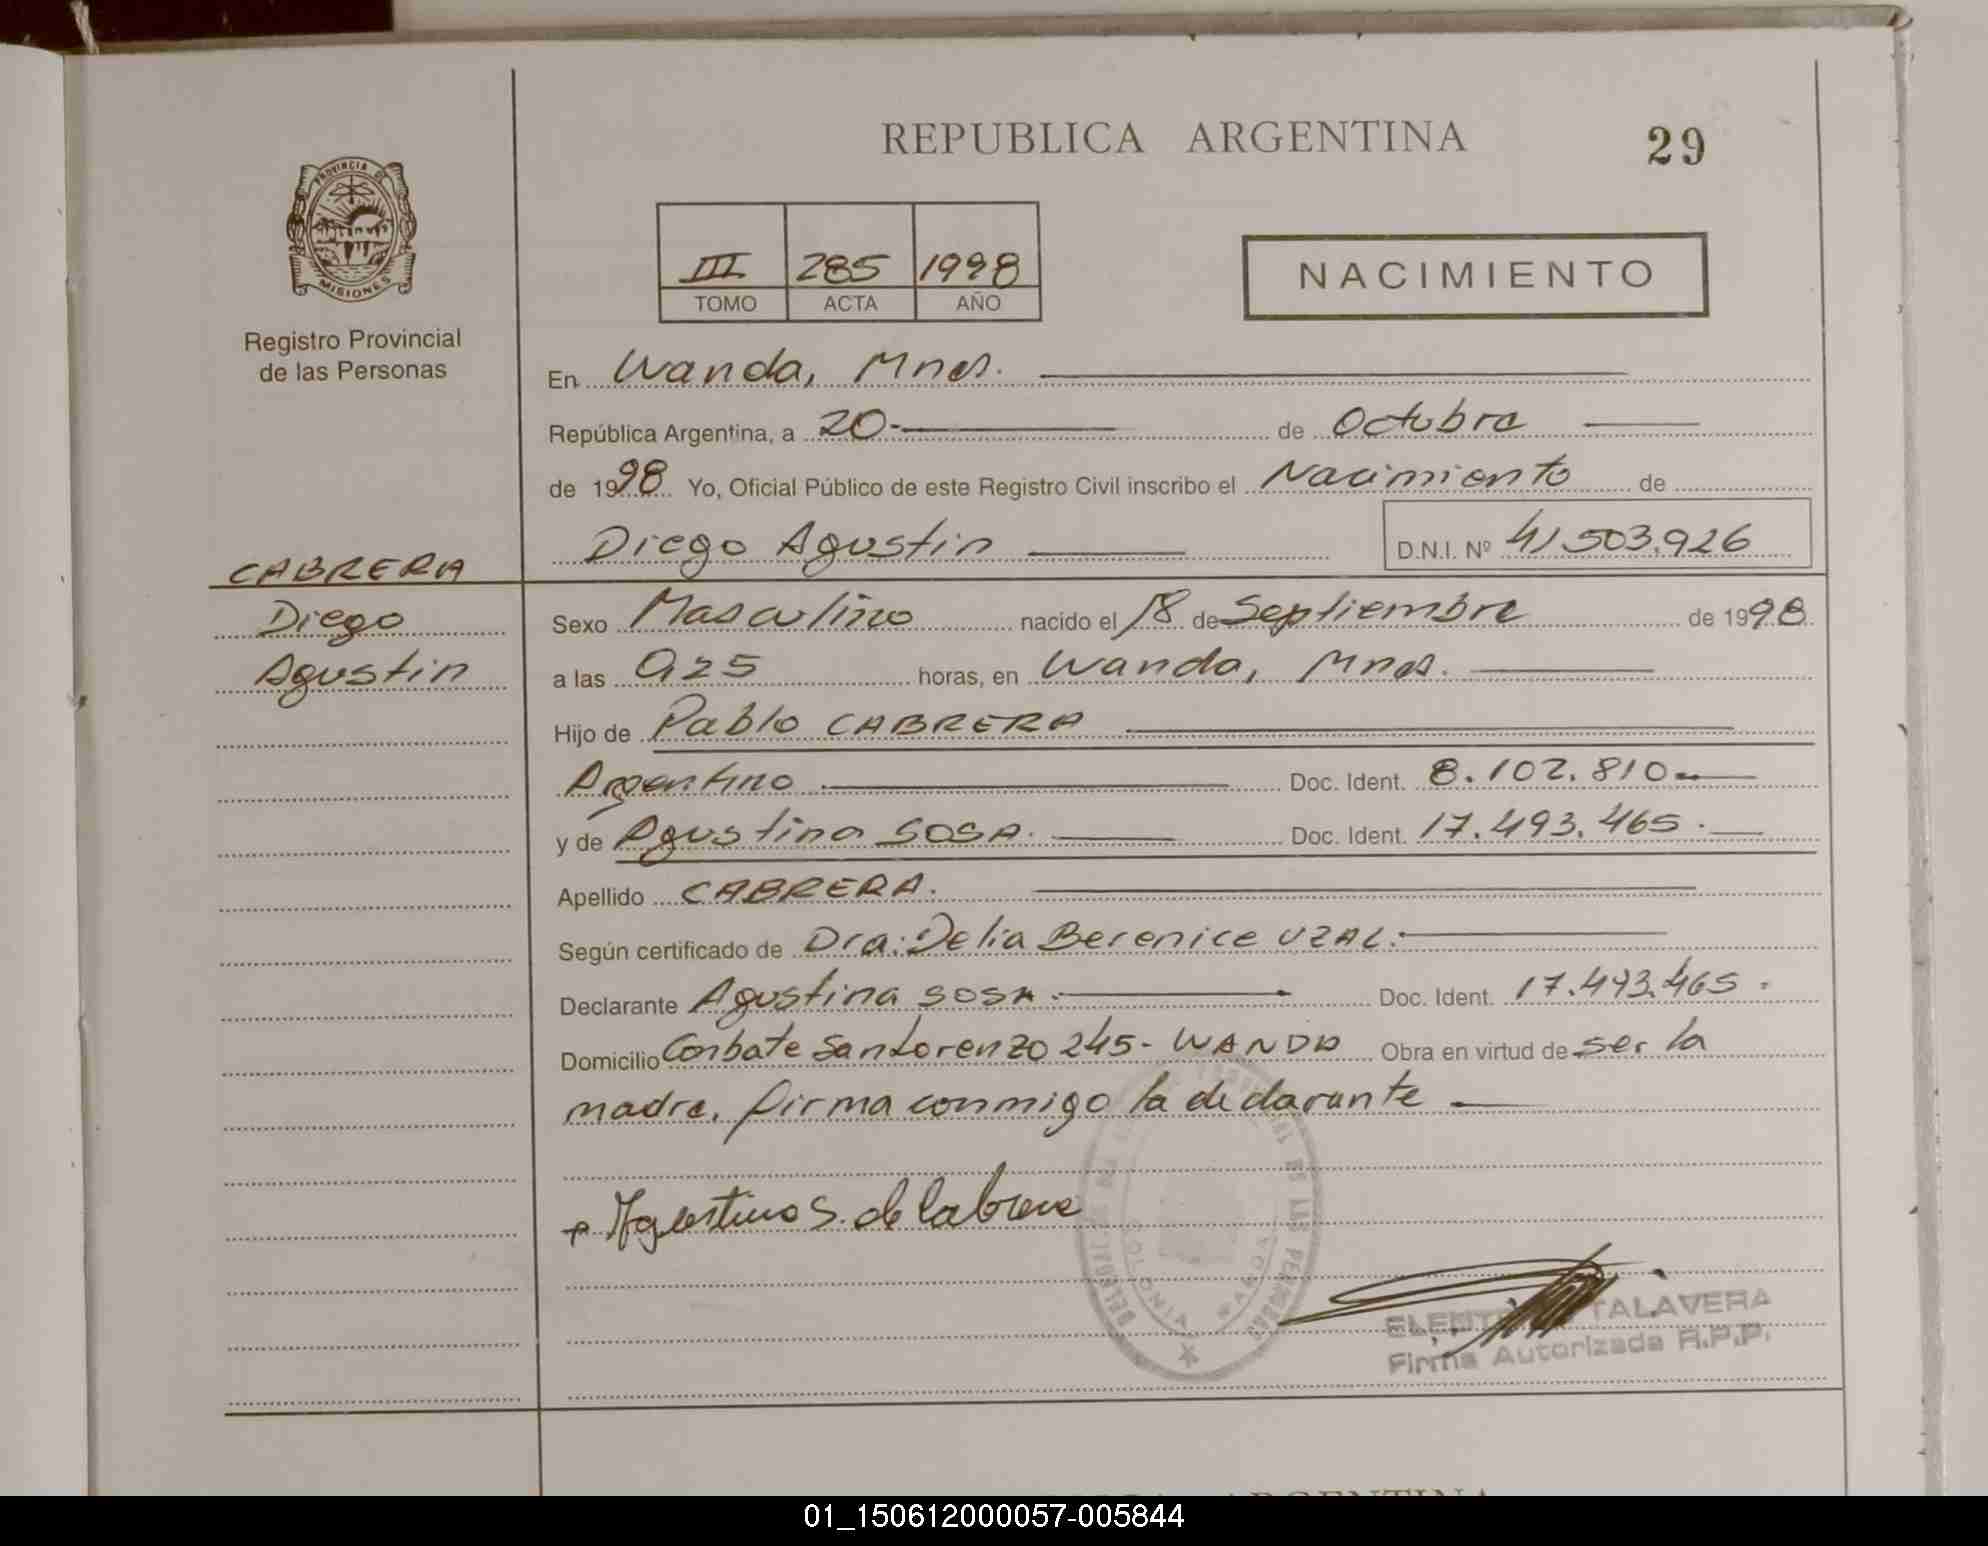 REPUBLICA ARGENTINA
29
PROVINCIA DE
MISIONES
Registro Provincial
de las Personas
III 285 1998
TOMO ACTA AÑO
NACIMIENTO
En Wanda, Mnes.
República Argentina, a 20 de Octubre
de 1998 Yo, Oficial Público de este Registro Civil inscribo el Nacimiento de
Diego Agustin D.N.I. Nº 41.503.926
CABRERA
Diego
Agustin
Sexo Masculino nacido el 18 de Septiembre de 1998
a las 0,25 horas, en Wanda, Mnes.
Hijo de Pablo CABRERA
Argentino Doc. Ident. 8.102.810
y de Agustina SOSA. Doc. Ident. 17.493.465.
Apellido CABRERA.
Según certificado de Dra: Delia Berenice UZAL.
Declarante Agustina SOSA. Doc. Ident. 17.493.465.
Domicilio Conbate San Lorenzo 245- WANDA Obra en virtud de ser la
madre. firma conmigo la declarante
Agustina S. de Cabrera
DE LAS PERSONAS
WANDA
TALAVERA
Firma Autorizada R.P.P.
ARGENTINA
01_150612000057-005844